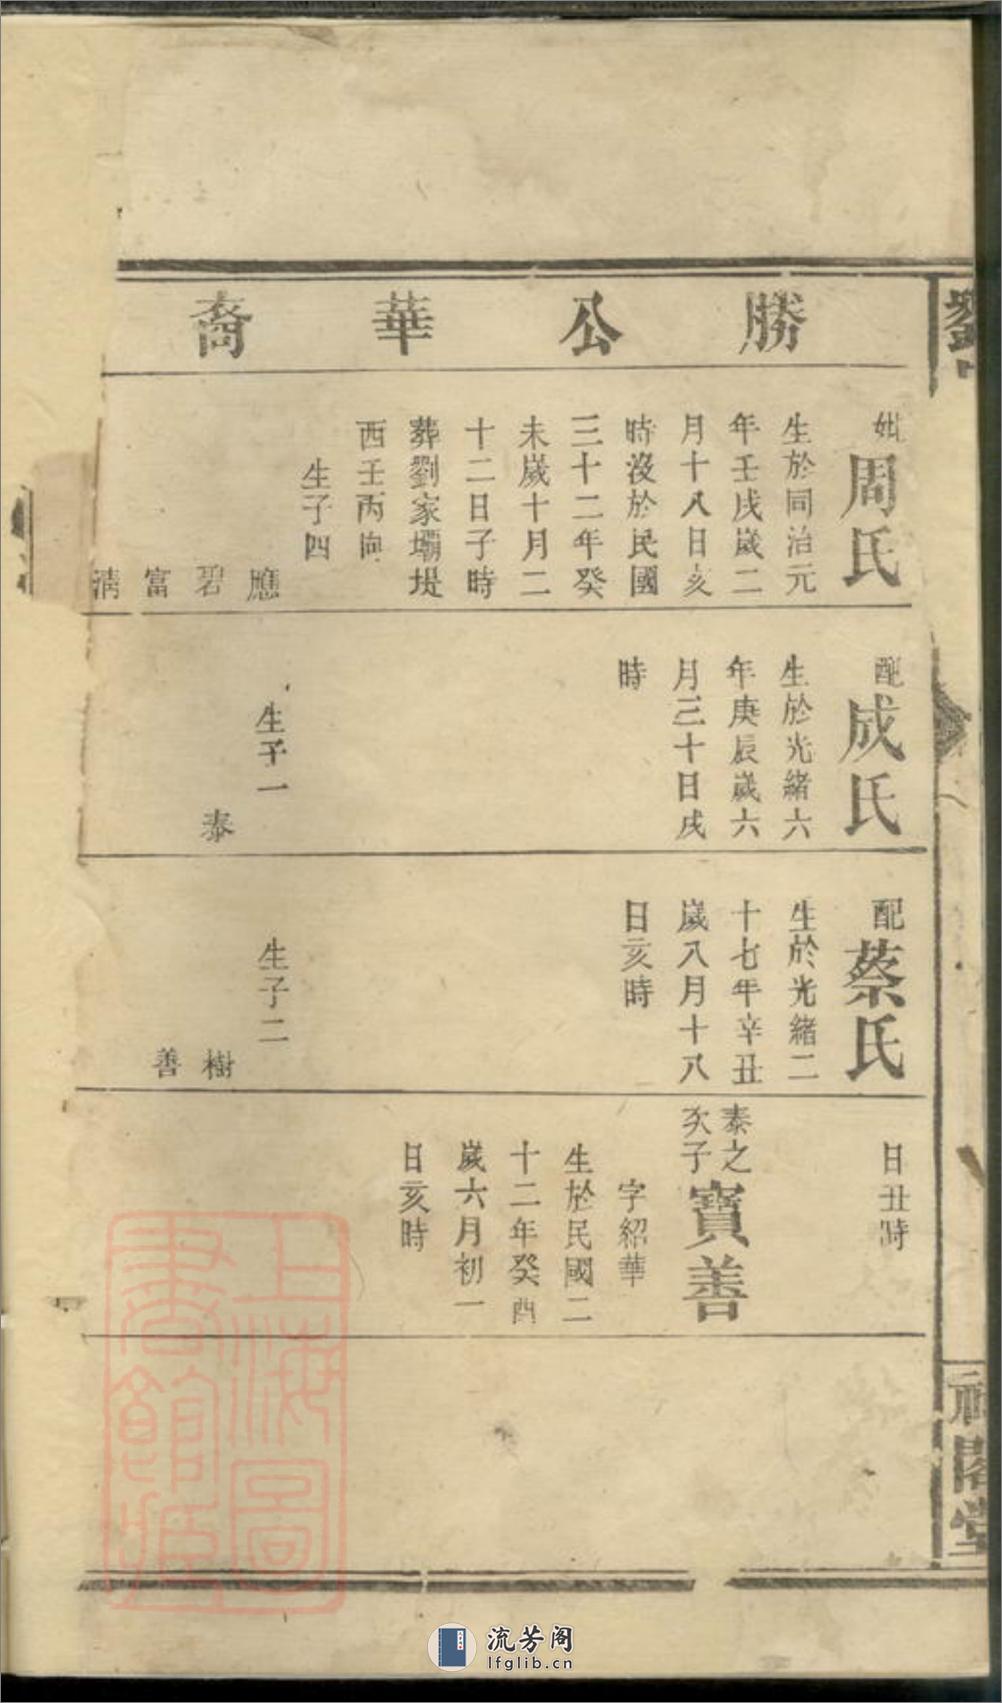 勝公華裔
妣周氏
生於同治元
年壬戌歲二
月十八日亥
時沒於民國
三十二年癸
未歲十月二
十二日子時
葬劉家壩堤
西壬丙向
生子四
應
碧
富
清
配成氏
生於光緒六
年庚辰歲六
月三十日戌
時
生子一
泰
配蔡氏
生於光緒二
十七年辛丑
歲八月十八
日亥時
生子二
樹
善
日丑時
泰之
次子
寶善
字紹華
生於民國二
十二年癸酉
歲六月初一
日亥時
閣堂
上海圖
書館藏
流芳阁
lfglib.cn